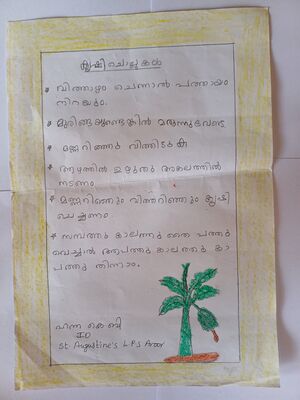 കൃഷിചൊല്ലുകൾ
* വിത്താഴം ചെന്നാൽ പത്തായം
നിറയും.
* മുരിങ്ങയുണ്ടെങ്കിൽ മരുന്നുവേണ്ട
* മണ്ണറിഞ്ഞു വിത്തിടുക
* ആഴത്തിൽ ഉഴുതു അകലത്തിൽ
നടണം
* മണ്ണറിഞ്ഞും വിത്തറിഞ്ഞും കൃഷി
ചെയ്യണം.
* സമ്പത്തു കാലത്തു തൈ പത്തു
വെച്ചാൽ ആപത്തു കാലത്തു കാ
പത്തു തിന്നാം.
ഹന്ന കെ ബി
II D
St Augustine's L.P.S Aroor